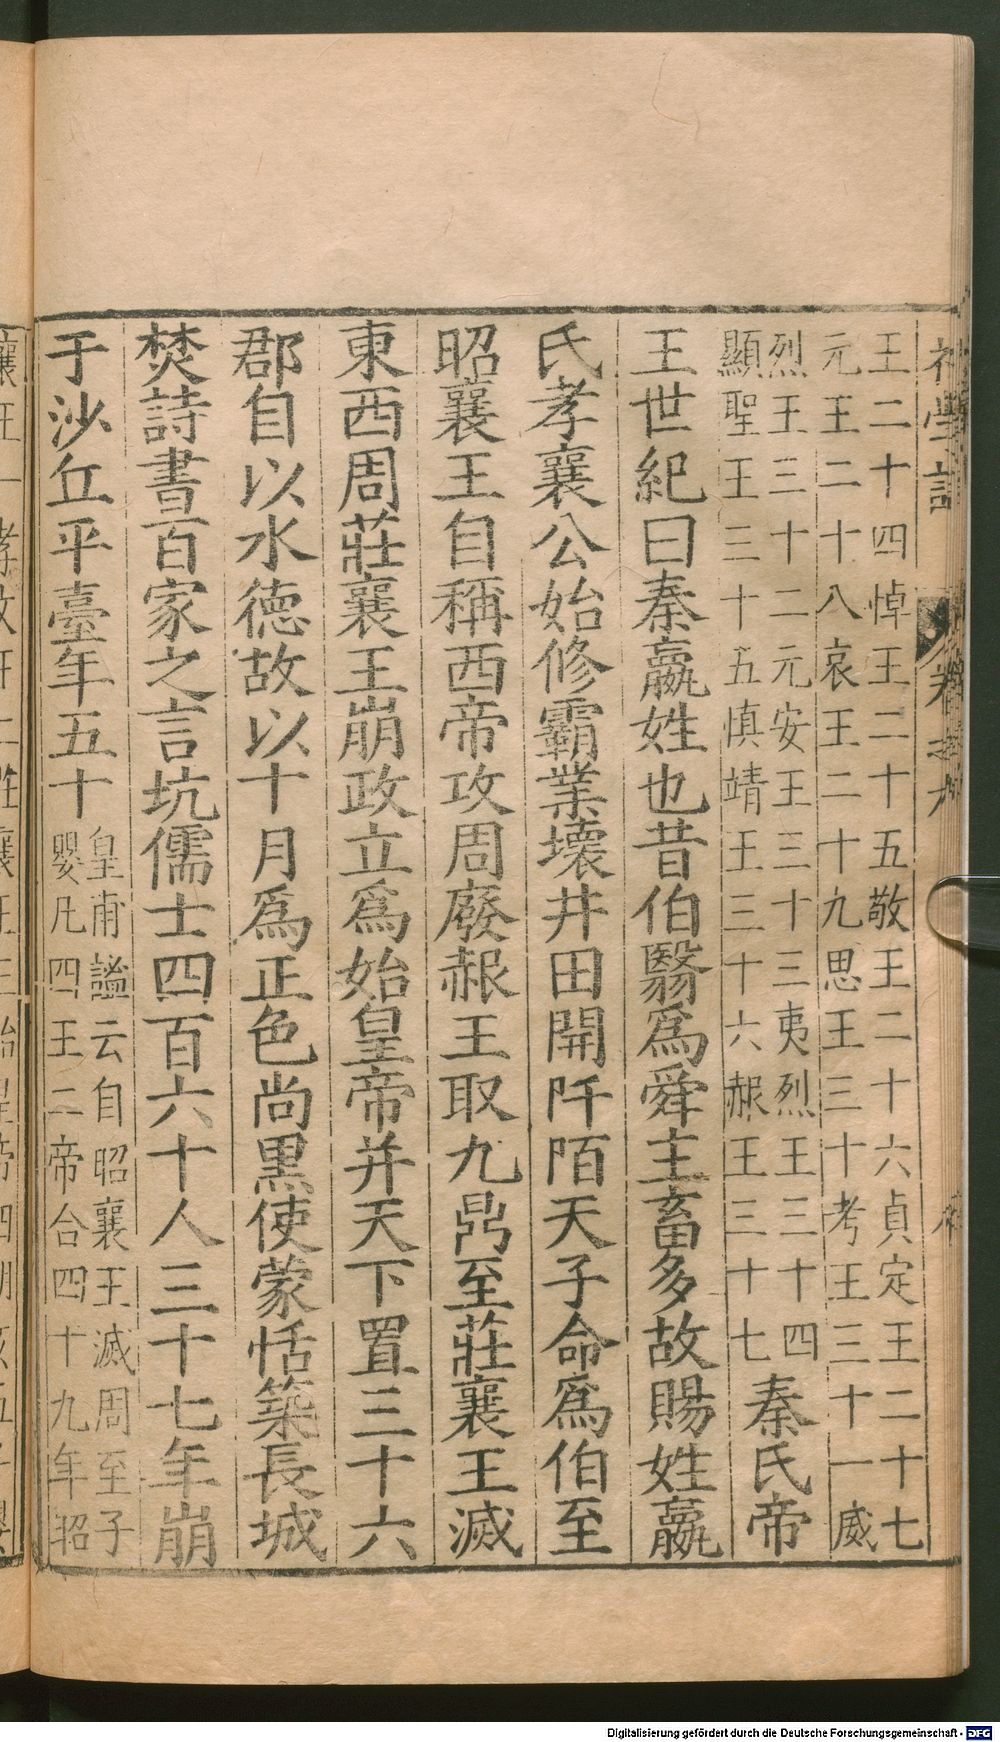 初學記 卷之九
王二十四悼王二十五敬王二十六貞定王二十七
元王二十八哀王二十九思王三十考王三十一威
烈王三十二元安王三十三夷烈王三十四
顯聖王三十五慎靖王三十六赧王三十七
秦氏帝
王世紀曰秦嬴姓也昔伯翳爲舜主畜多故賜姓嬴
氏孝襄公始修霸業壞井田開阡陌天子命爲伯至
昭襄王自稱西帝攻周廢赧王取九鼎至莊襄王滅
東西周莊襄王崩政立爲始皇帝并天下置三十六
郡自以水德故以十月爲正色尚黑使蒙恬築長城
焚詩書百家之言坑儒士四百六十人三十七年崩
于沙丘平臺年五十
皇甫謐云自昭襄王滅周至子
嬰凡四王二帝合四十九年昭
Digitalisierung gefördert durch die Deutsche Forschungsgemeinschaft - DFG